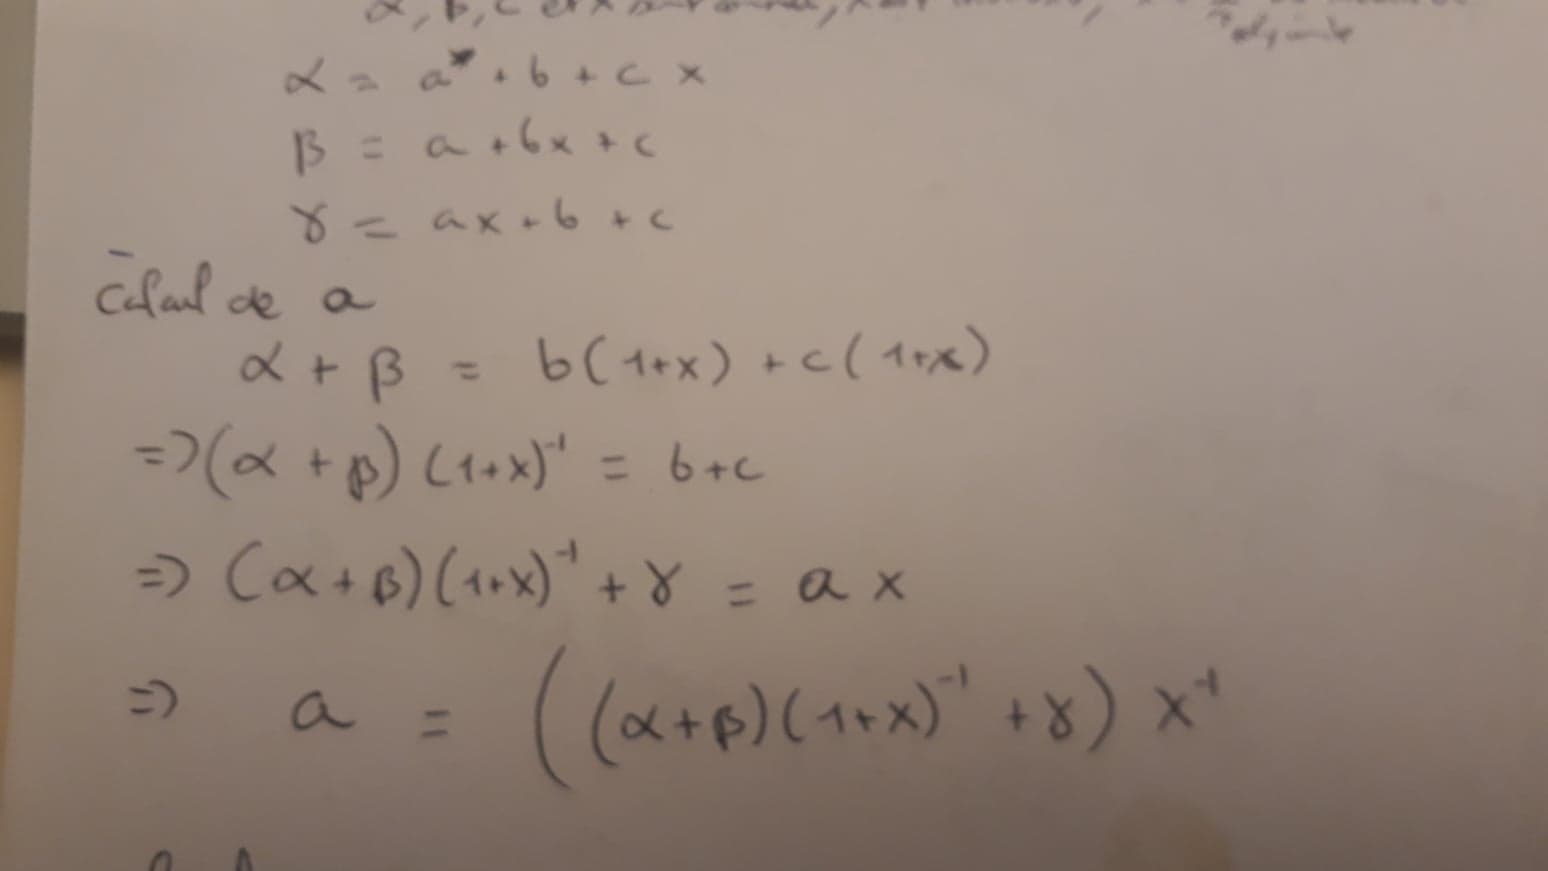 α, β, c et x
α = a + b + c x
β = a + bx + c
γ = ax + b + c
Calcul de a
α + β = b(1+x) + c(1+x)
=> (α + β) (1+x)⁻¹ = b+c
=> (α+β)(1+x)⁻¹ + γ = a x
=> a = ((α+β)(1+x)⁻¹ + γ) x⁻¹